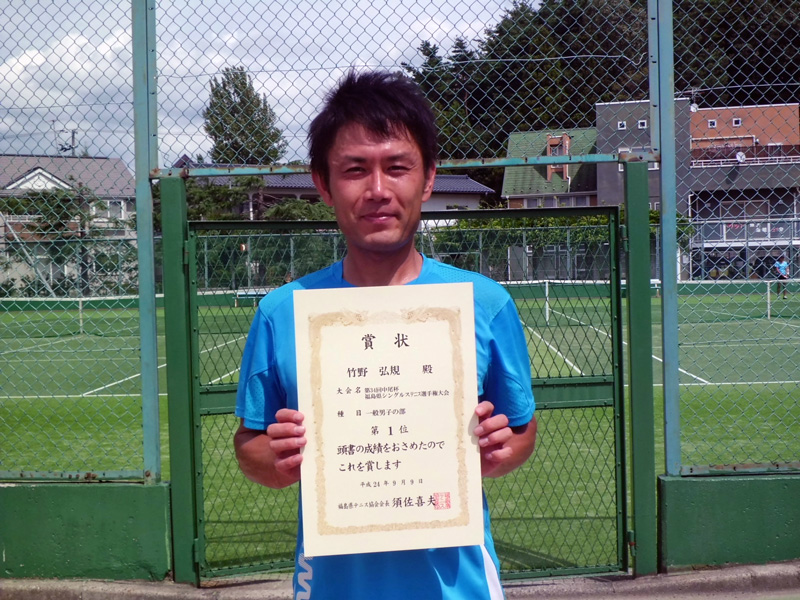 賞状
竹野 弘規 殿
大会名 第34回中尾杯
福島県シングルステニス選手権大会
種目 一般男子の部
第1位
頭書の成績をおさめたので
これを賞します
平成24年9月9日
福島県テニス協会会長 須佐喜夫